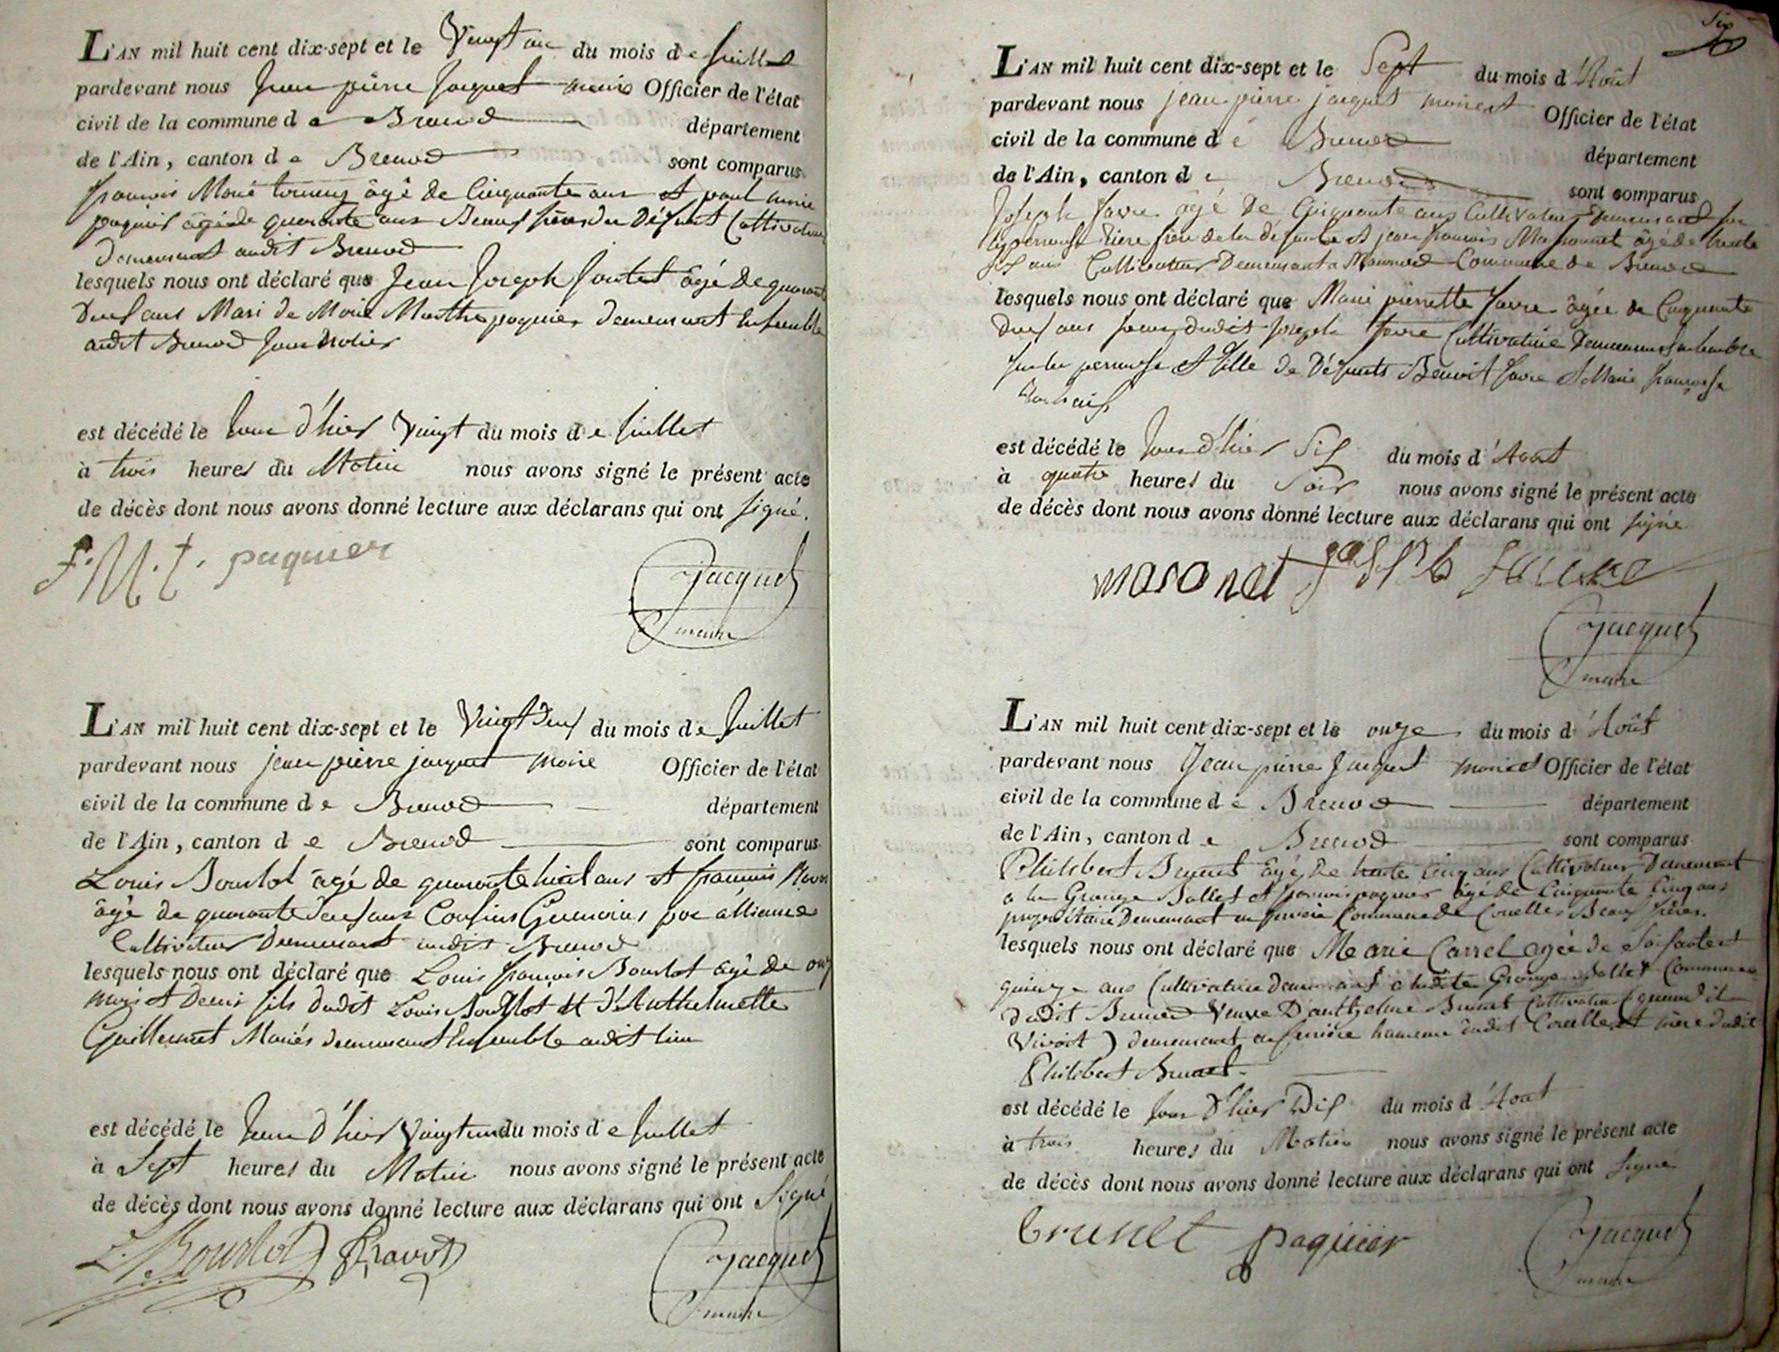 L'AN mil huit cent dix-sept et le Vingt un du mois de juillet
pardevant nous Jean pierre Jacquet maire Officier de l'état
civil de la commune de Brenod département
de l'Ain, canton de Brenod sont comparus
françois Marie âgé de Cinquante ans et paul marie
paquier âgé de quarante ans Beaux frères du Défunt Cultivateurs
Demeurant audit Brenod
lesquels nous ont déclaré que Jean Joseph âgé de quarante
Deux ans Mari de Marie Marthe paquier demeurant Ensemble
audit Brenod Journalier
est décédé le Jour d'hier Vingt du mois de Juillet
à trois heures du Matin nous avons signé le présent acte
de décès dont nous avons donné lecture aux déclarans qui ont signé.
f. M. t. paquier
Jacquet
maire
L'AN mil huit cent dix-sept et le Vingt Deux du mois de Juillet
pardevant nous jean pierre jacquet maire Officier de l'état
civil de la commune de Brenod département
de l'Ain, canton de Brenod sont comparus
Louis Bourlot âgé de quarante huit ans et françois Ravot
âgé de quarante Deux ans Cousins Germains par alliance
Cultivateurs Demeurant audit Brenod
lesquels nous ont déclaré que Louis françois Bourlot âgé de onze
mois et Demi fils dudit Louis Bourlot et d'Anthelmette
Guillermet Mariés demeurant Ensemble audit lieu
est décédé le Jour d'hier Vingt un du mois de Juillet
à Sept heures du Matin nous avons signé le présent acte
de décès dont nous avons donné lecture aux déclarans qui ont Signé
L. Bourlot Ravot
Jacquet
maire
Six
L'AN mil huit cent dix-sept et le Sept du mois d'Août
pardevant nous jean pierre jacquet maire et Officier de l'état
civil de la commune de Brenod département
de l'Ain, canton de Brenod sont comparus
Joseph favre âgé De Cinquante ans Cultivateur Demeurant sur
la perrouse frère de la défunte et jean françois Massonnet âgé de trente
six ans Cultivateur Demeurant a Commune de Brenod
lesquels nous ont déclaré que Marie pierrette favre âgée de Cinquante
Deux ans soeur dudit Joseph favre Cultivatrice Demeurant Ensemble
sur la perrouse et fille de Défunts Benoit favre et Marie françoise
est décédé le Jour d'hier Six du mois d'Aout
à quatre heures du Soir nous avons signé le présent acte
de décès dont nous avons donné lecture aux déclarans qui ont signé
masonet
Jacquet
maire
L'AN mil huit cent dix-sept et le onze du mois d'Août
pardevant nous Jean pierre Jacquet maire et Officier de l'état
civil de la commune de Brenod département
de l'Ain, canton de Brenod sont comparus
Philibert Brunet âgé de trente Cinq ans Cultivateur Demeurant
a la Grange Ballet et françois paquier âgé de Cinquante Cinq ans
propriétaire Demeurant Commune de Corcelles Beaux frères.
lesquels nous ont déclaré que Marie Carrel agée de Soixante et
quinze ans Cultivatrice demeurant a ladite Grange Ballet Commune
dudit Brenod Veuve D'anthelme Brunet Cultivateur (quand il
Vivoit) demeurant hameau dudit Corcelles et mère dudit
Philibert Brunet.
est décédé le Jour D'hier Dix du mois d'Aout
à trois heures du Matin nous avons signé le présent acte
de décès dont nous avons donné lecture aux déclarans qui ont Signé
brunet paquier
Jacquet
maire